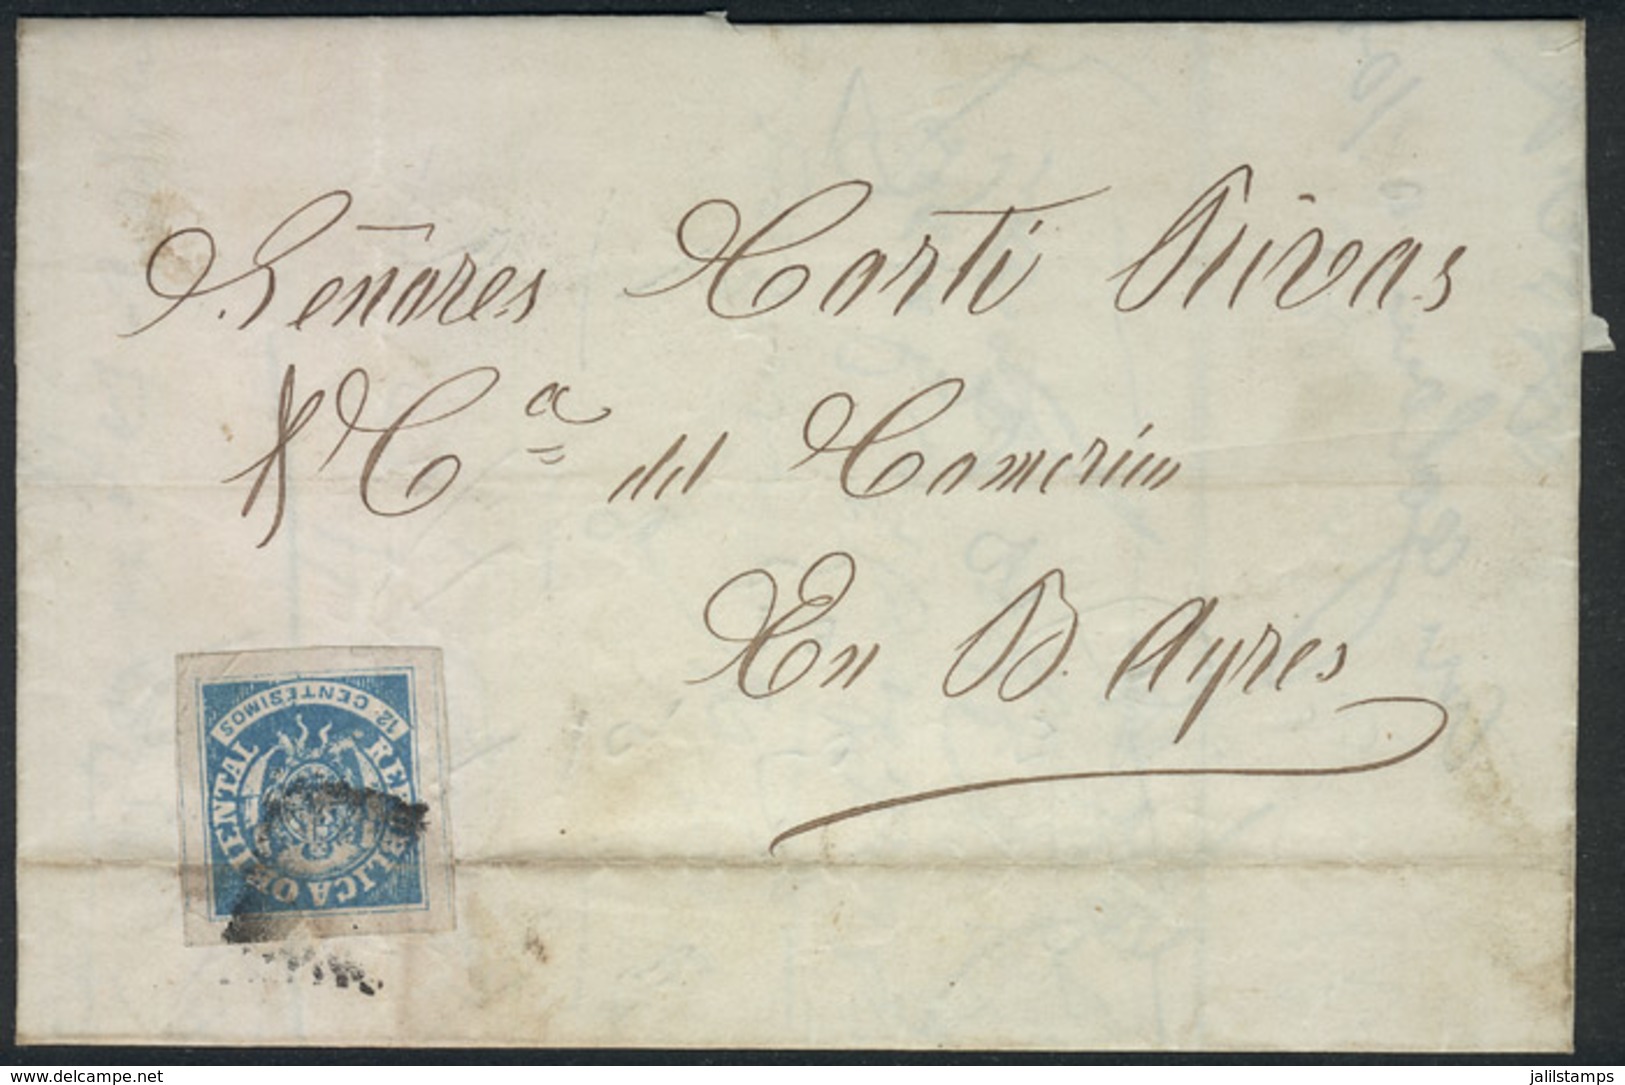 Señores Martí Rivas
& Cª del Comercio
En B. Ayres
12 CENTESIMOS
REPUBLICA ORIENTAL
www.delcampe.net
jalilstamps